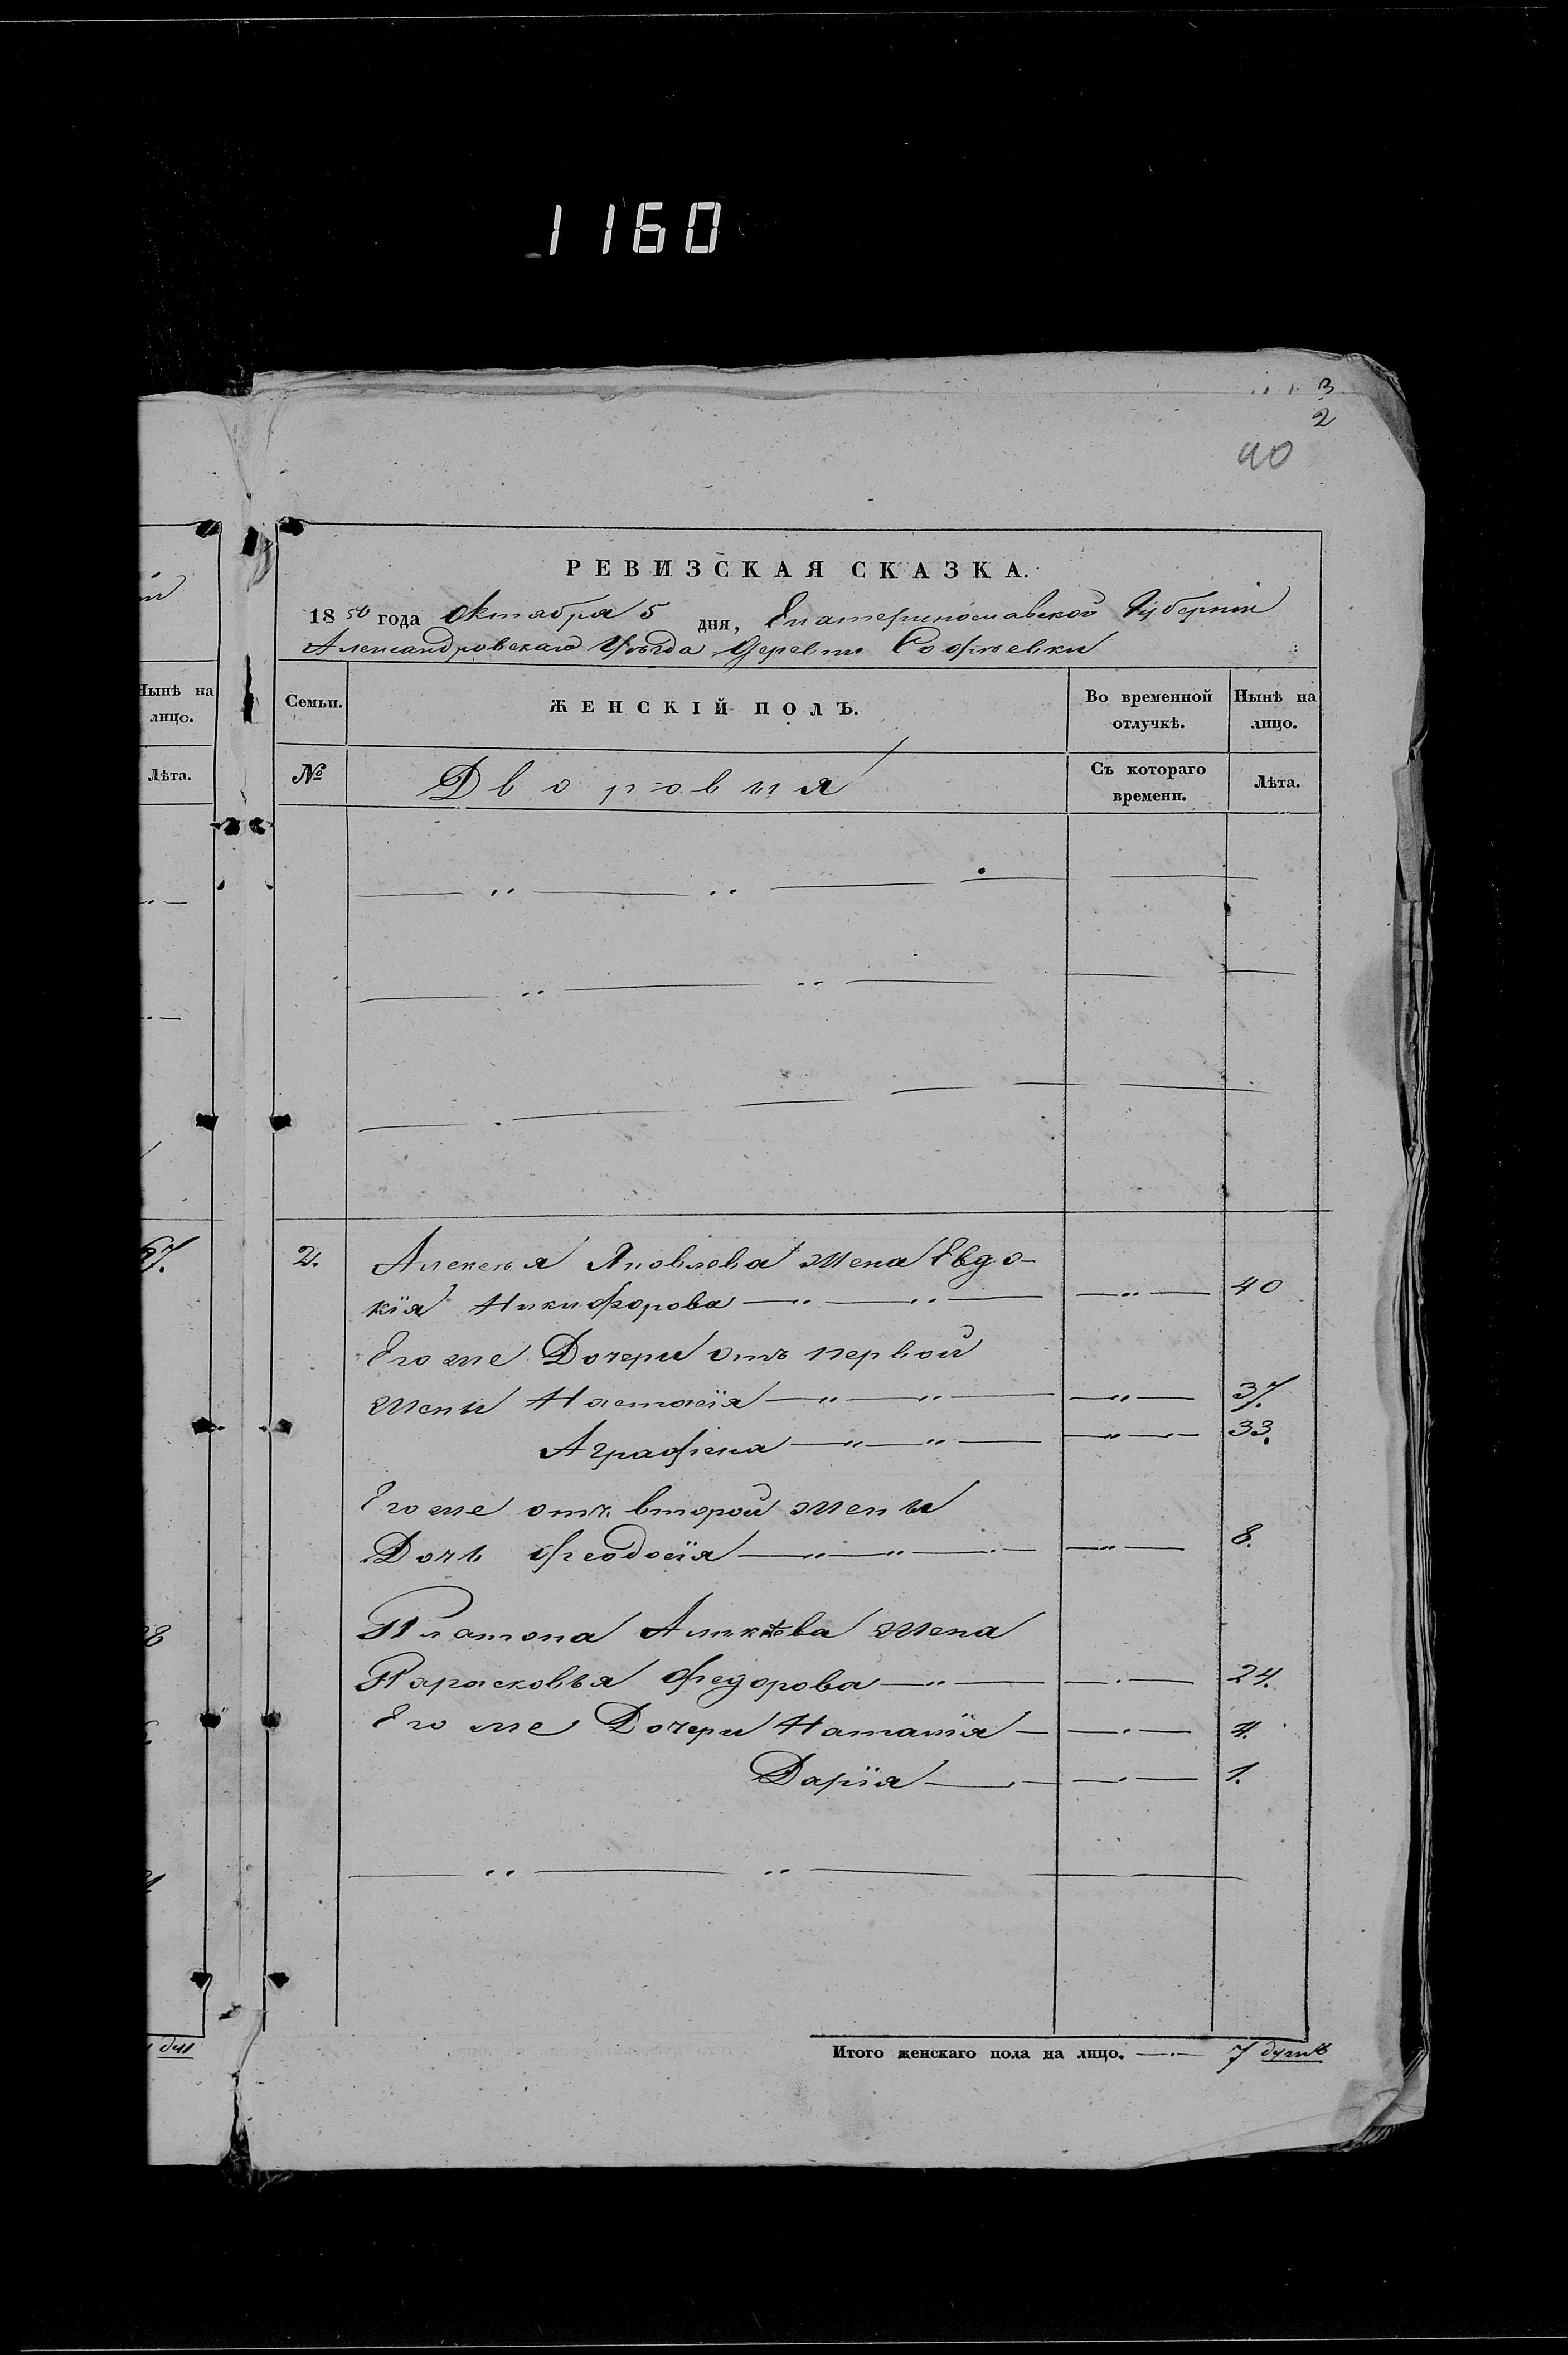 1160
3
2
40
РЕВИЗСКАЯ СКАЗКА.
1850 года Октября 5 дня, Екатеринославской Губерніи
Александровскаго Уѣзда Деревни Софьевки
Нынѣ на лицо.
Лѣта.
67.
Семьи.
ЖЕНСКІЙ ПОЛЪ.
Во временной отлучкѣ.
Нынѣ на лицо.
№
Дворовыя
Съ котораго времени.
Лѣта.
2. Алексѣя Яковлева жена Евдо-
кія Никифорова — „ — „ — — „ — 40
Его же Дочери отъ первой
жены Настасія — „ — „ — — „ — 37.
Аграфена — „ — „ — — „ — 33.
Его же отъ второй жены
Дочь Феодосія — „ — „ — — „ — 8.
Платона жена
Парасковья Федорова — „ — — . — 24.
Его же Дочери Наталія — — . — 4.
Дарія — . — — . — 1.
Итого женскаго пола на лицо. — . — 7 душъ